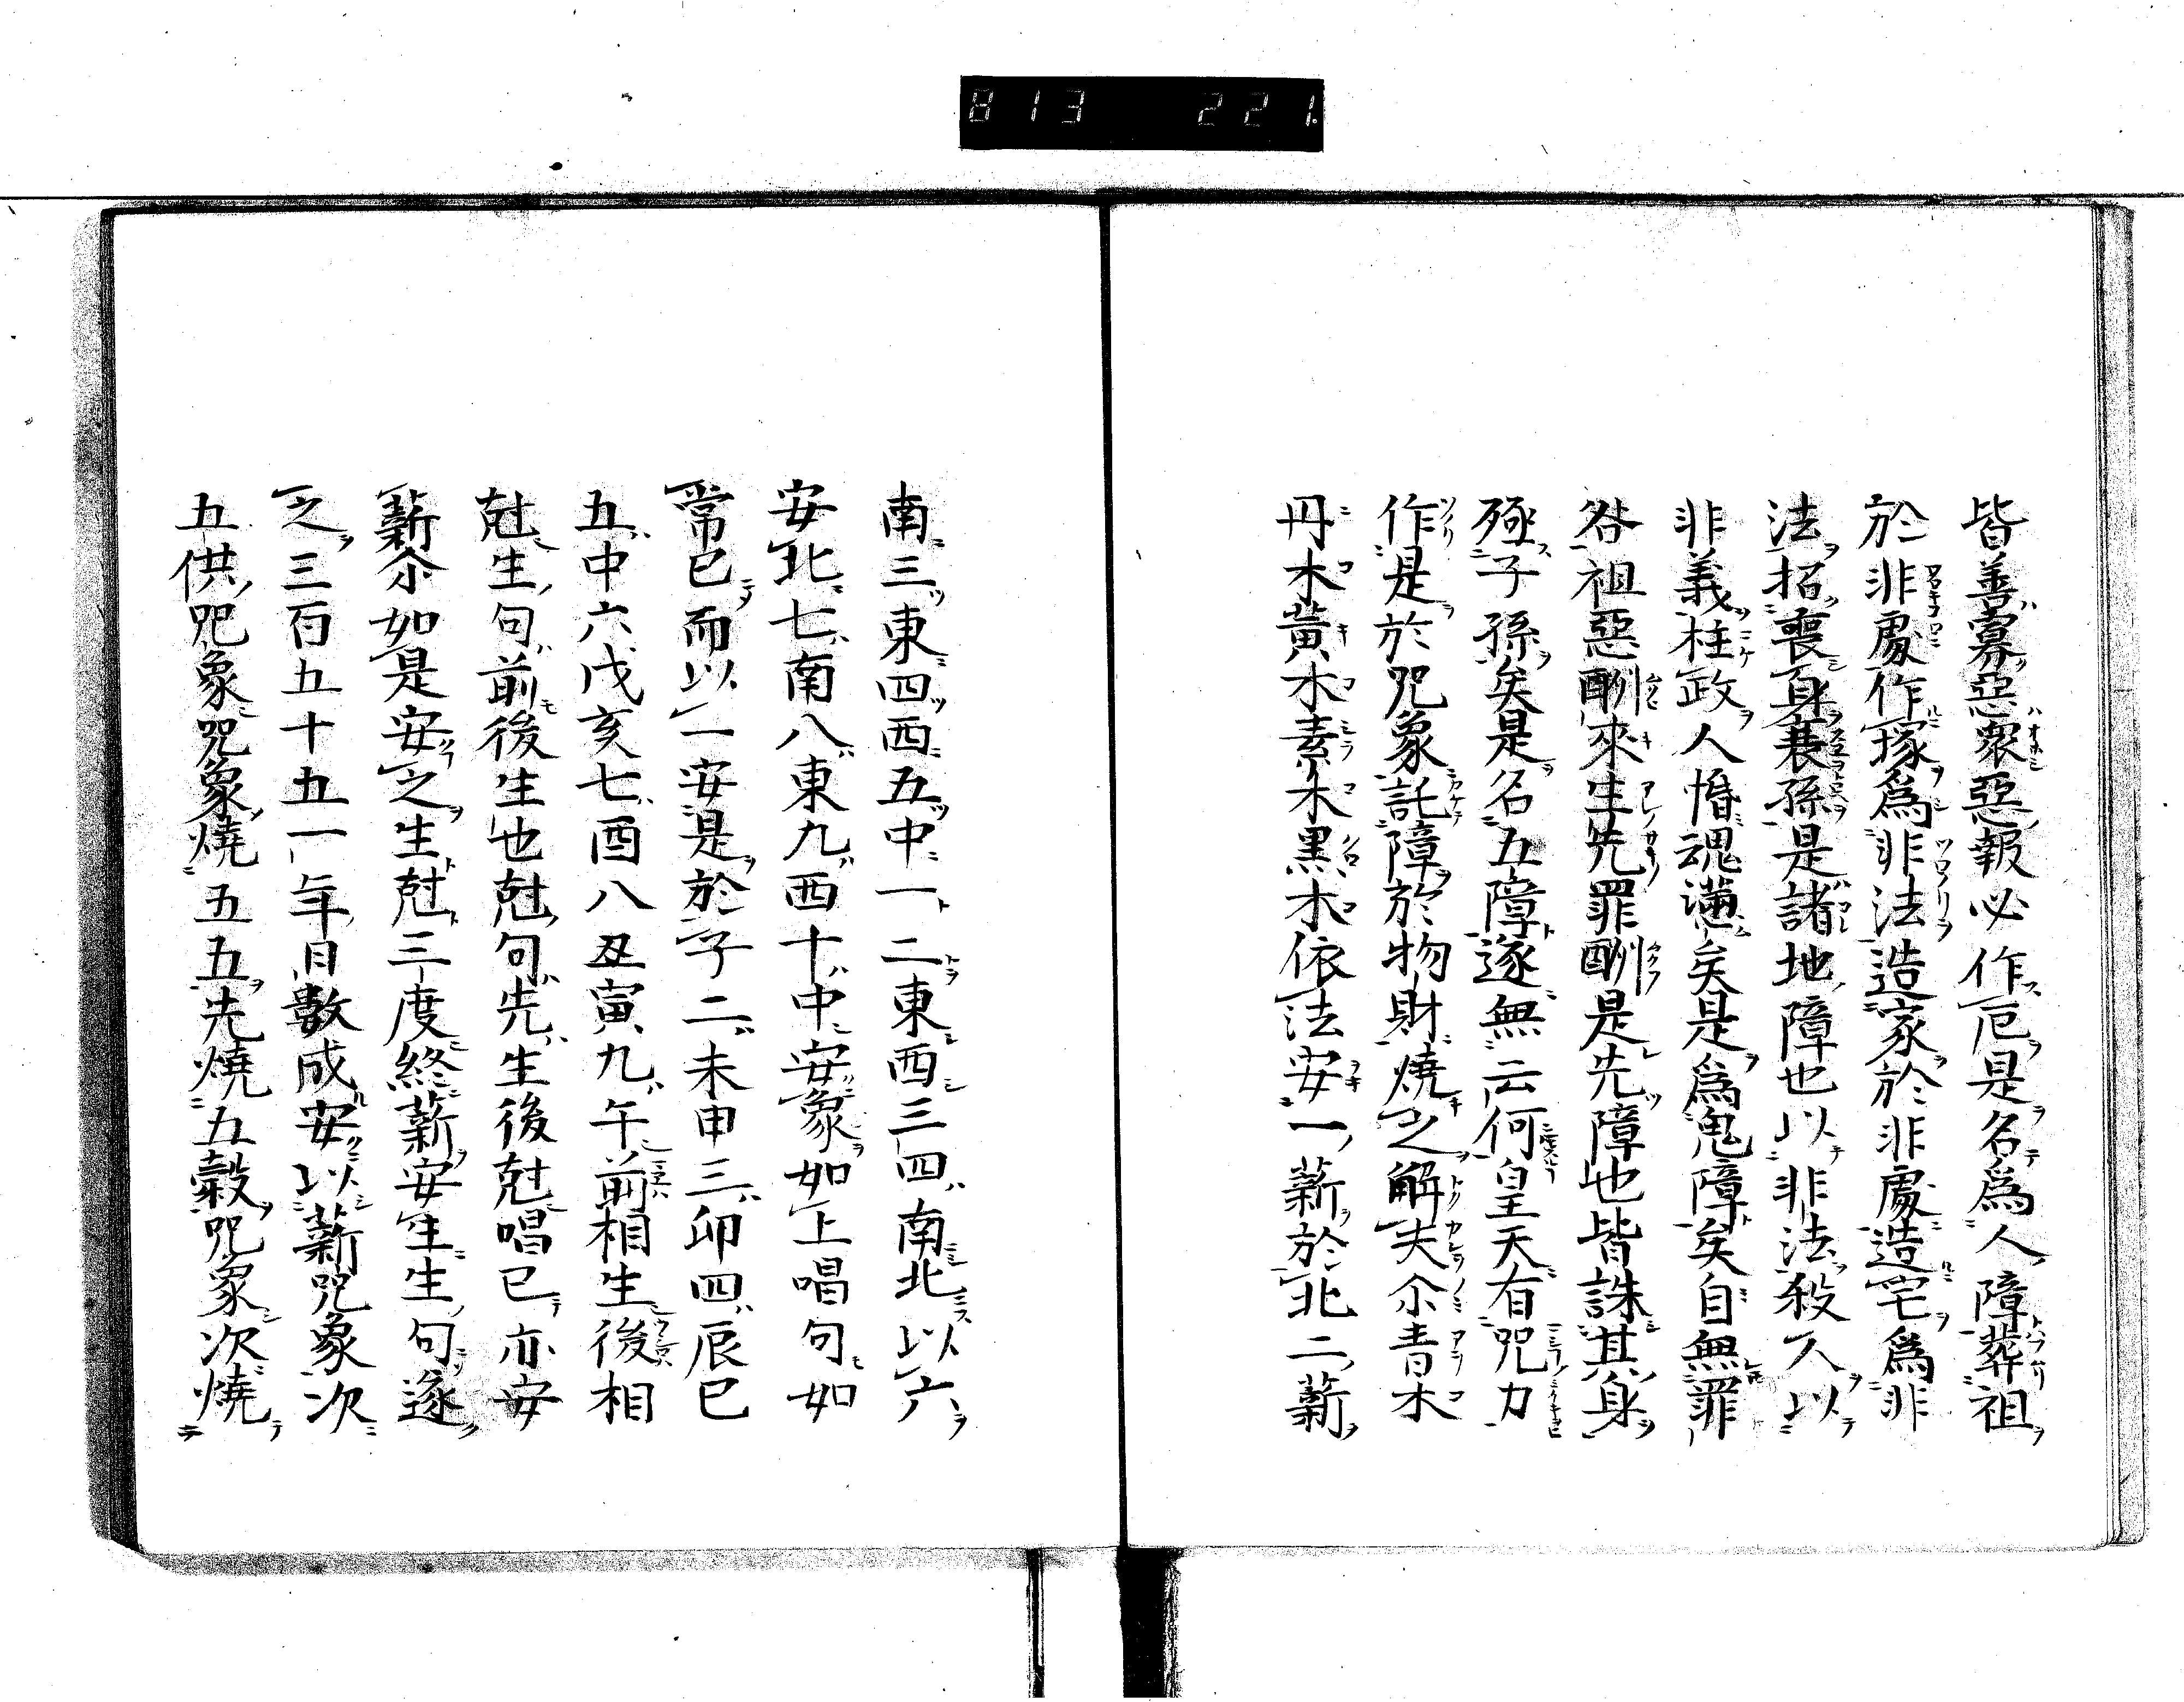 813 221.
皆善寡惡衆惡報必作厄是名爲人障葬祖
於非處作塚爲非法造家於非處造宅爲非
法招喪身喪孫是諸地障也以非法殺人以
非義枉政人惛魂懣矣是爲鬼障矣自無罪
咎祖惡酬來生先罪酬是先障也皆誅其身
殛子孫矣是名五障遂無云何皇天有咒力
作是於咒象託障於物財燒之解夫尒青木
丹木黃木素木黑木依法安一薪於北二薪
南三東四西五中一二東西三四南北以六
安北七南八東九西十中安象如上唱句如
常已而以一安是於子二未申三卯四辰巳
五中六戊亥七酉八丑寅九午前相生後相
尅生句前後生也尅句先生後尅唱已亦安
薪尒如是安之生尅三度終薪安生生句遂
之三百五十五一年日數成安以薪咒象次
五供咒象咒象燒五五先燒五穀咒象次燒